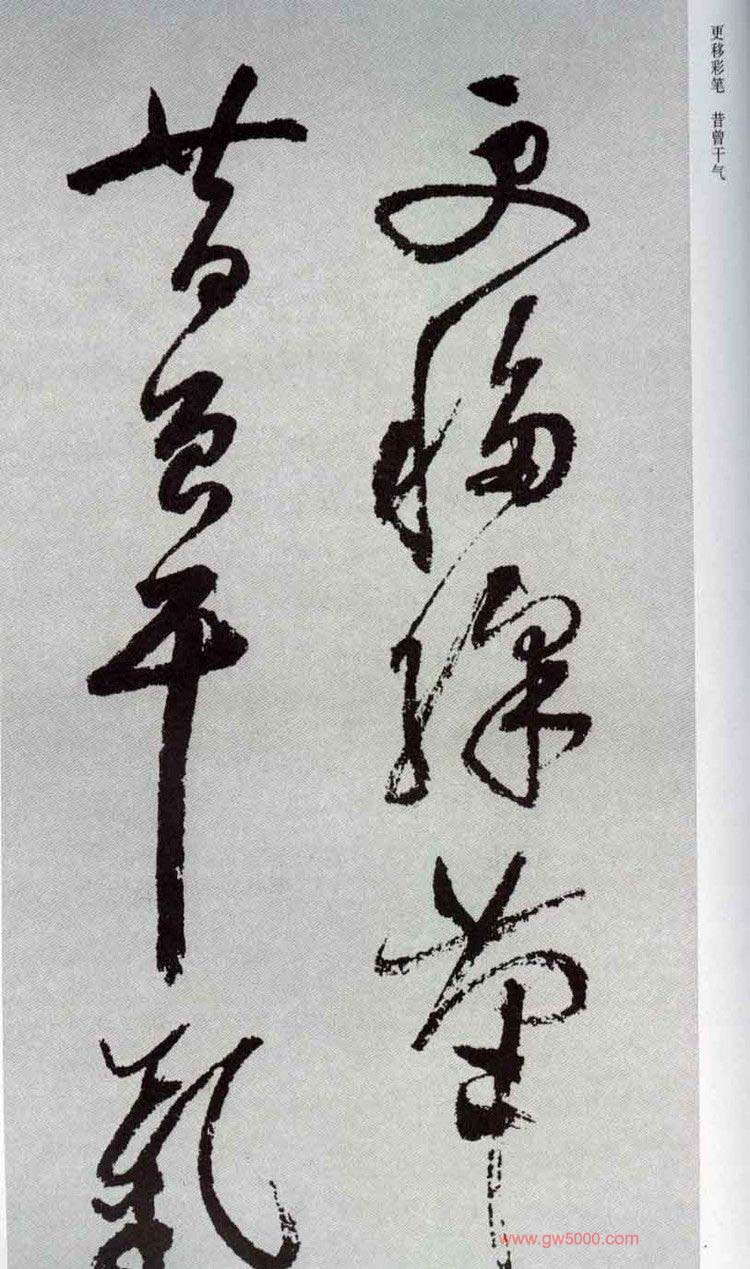 更移彩笔 昔曾干气
更移綵筆
昔曾干氣
www.gw5000.com